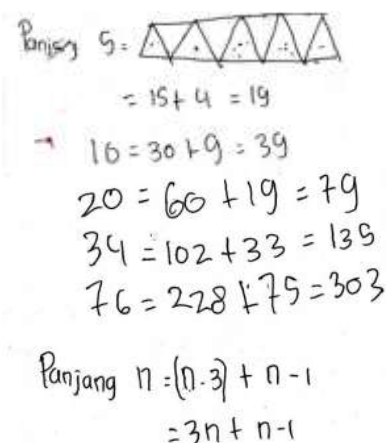 Panjang 5 =
= 15 + 4 = 19
→ 10 = 30 + 9 = 39
20 = 60 + 19 = 79
34 = 102 + 33 = 135
76 = 228 + 75 = 303
Panjang n = (n . 3) + n - 1
= 3n + n - 1